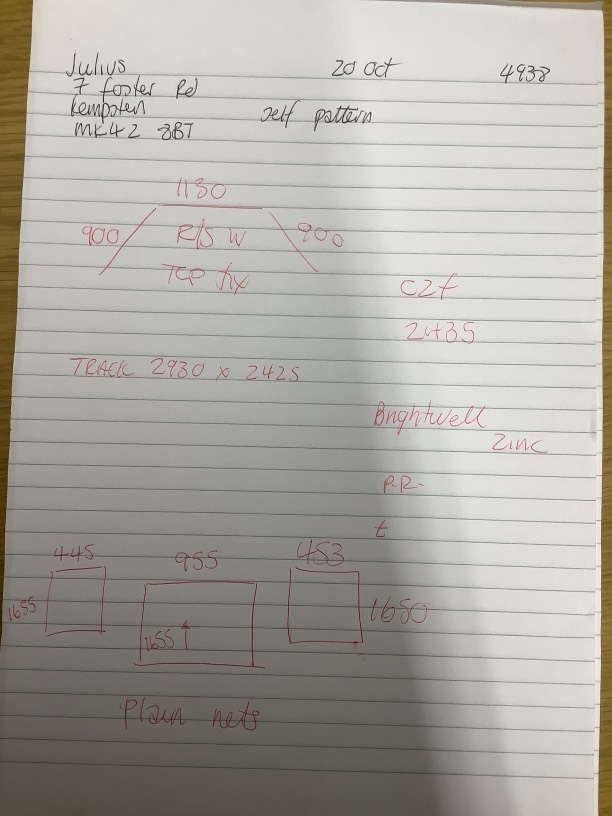 Julius 20 Oct 4938
7 foster Rd
Kempsten self pattern
MK42 8BT
1130
900 R/S W 900
TOP fix
C2f
2435
TRACK 2930 x 2425
Brightwell
Zinc
P.R.
t
445 955 453
1655 1655 1650
Plain nets